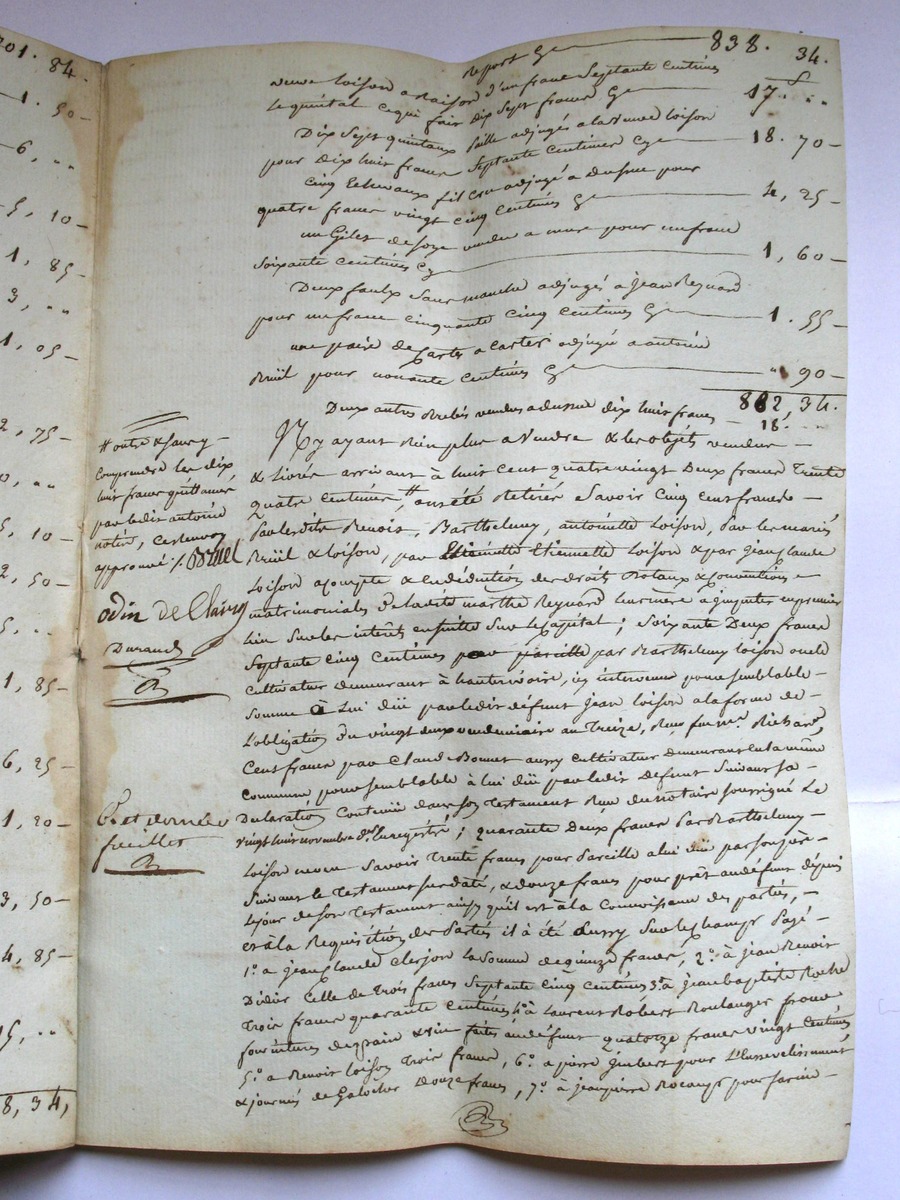 01. 84.
1. 50 -
6, ..
5, 10 -
1, 85 -
3, ..
1, 05 -
2, 75 -
0, ..
5, 10 -
2, 50 -
5, ..
1, 85 -
6, 25 -
1, 20 -
3, 50 -
4, 85 -
15, ..
8, 34,
Report 838. 34.
veuve loison a Raison d'un franc Septante centimes
le quintal ce qui fait dix Sept francs 17. ..
Dix Sept quintaux paille adjugés a la veuve loison
pour dix huit francs Septante centimes 18. 70 -
cinq Echevaux fil cru adjugé a pour
quatre francs vingt cinq centimes 4, 25 -
un Gilet de soye vendu a pour un franc
Soixante centimes 1, 60 -
Deux faulx Sans manche adjugés à jean Reynard
pour un franc cinquante cinq centimes 1. 55 -
une paire de Cartes a carter adjugée a antoine
Ruïl pour nonante centimes " 90 -
882, 34.
Deux autres vendus a dix huit francs - 18. ..
N'y ayant Rien plus a Vendre & les objets vendus -
& livrés arrivant à huit cent quatre vingt Deux francs Trente
quatre centimes, # ont été Retirés a Savoir Cinq Cent francs -
par lesdits Benoit, Barthelemy, antoinette Loison, par les mariés
Ruïl & loison, par Etiennette Loison & par jean Claude
Loison a compte & en déduction des droits Dotaux & Conventions
matrimoniales de ladite marthe Reynard leur mere a imputer en premier
lieu Sur les interêts ensuitte Sur le Capital; Soixante Deux francs
Septante cinq centimes par Barthelemy loison oncle
cultivateur demeurant à hauterivoire, ici intervenu pour semblable -
Somme à Lui düe par ledit défunt jean loison a la forme de -
L'obligation du vingt deux vendemiaire an Treize, Reçu Richard,
Cent francs par Claude Bonnet aussy cultivateur demeurant en la même
Commune pour semblable à lui düe par ledit Défunt Suivant sa -
Déclaration Contenüe dans son Testament Reçu du notaire soussigné Le
vingt huit novembre Enregistré; quarante Deux francs par Barthelemy -
loison neveu Savoir Trente francs pour Pareille a lui düe par son père -
Suivant le Testament Susdaté, & douze francs pour prêt au défunt depuis
le jour de son Testament ainsy qu'il est à la Connoissance des parties, -
et à la Requisition des Parties il a été aussy Sur le champ Payé -
1.° a jean Claude Clerjon la Somme de quinze francs, 2.° à jean Benoit
Didier Celle de Trois francs Septante Cinq Centimes 3.° à jean baptiste Roche
Trois francs quarante centimes 4.° à Laurent Robert Boulanger pour
fournitures de grain & vin faites au défunt quatorze francs vingt centimes
5.° a Benoit loison Trois francs, 6.° a pierre Guibert pour L'Enssevelissement
& journés de Galocher Douze francs, 7.° à jean pierre pour
# outre & sans y -
comprendre les dix
huit francs
par ledit antoine
notire, ce renvoy
approuvé /. Bruel
odin de Clairy
Durand
Et dernier
feuillet